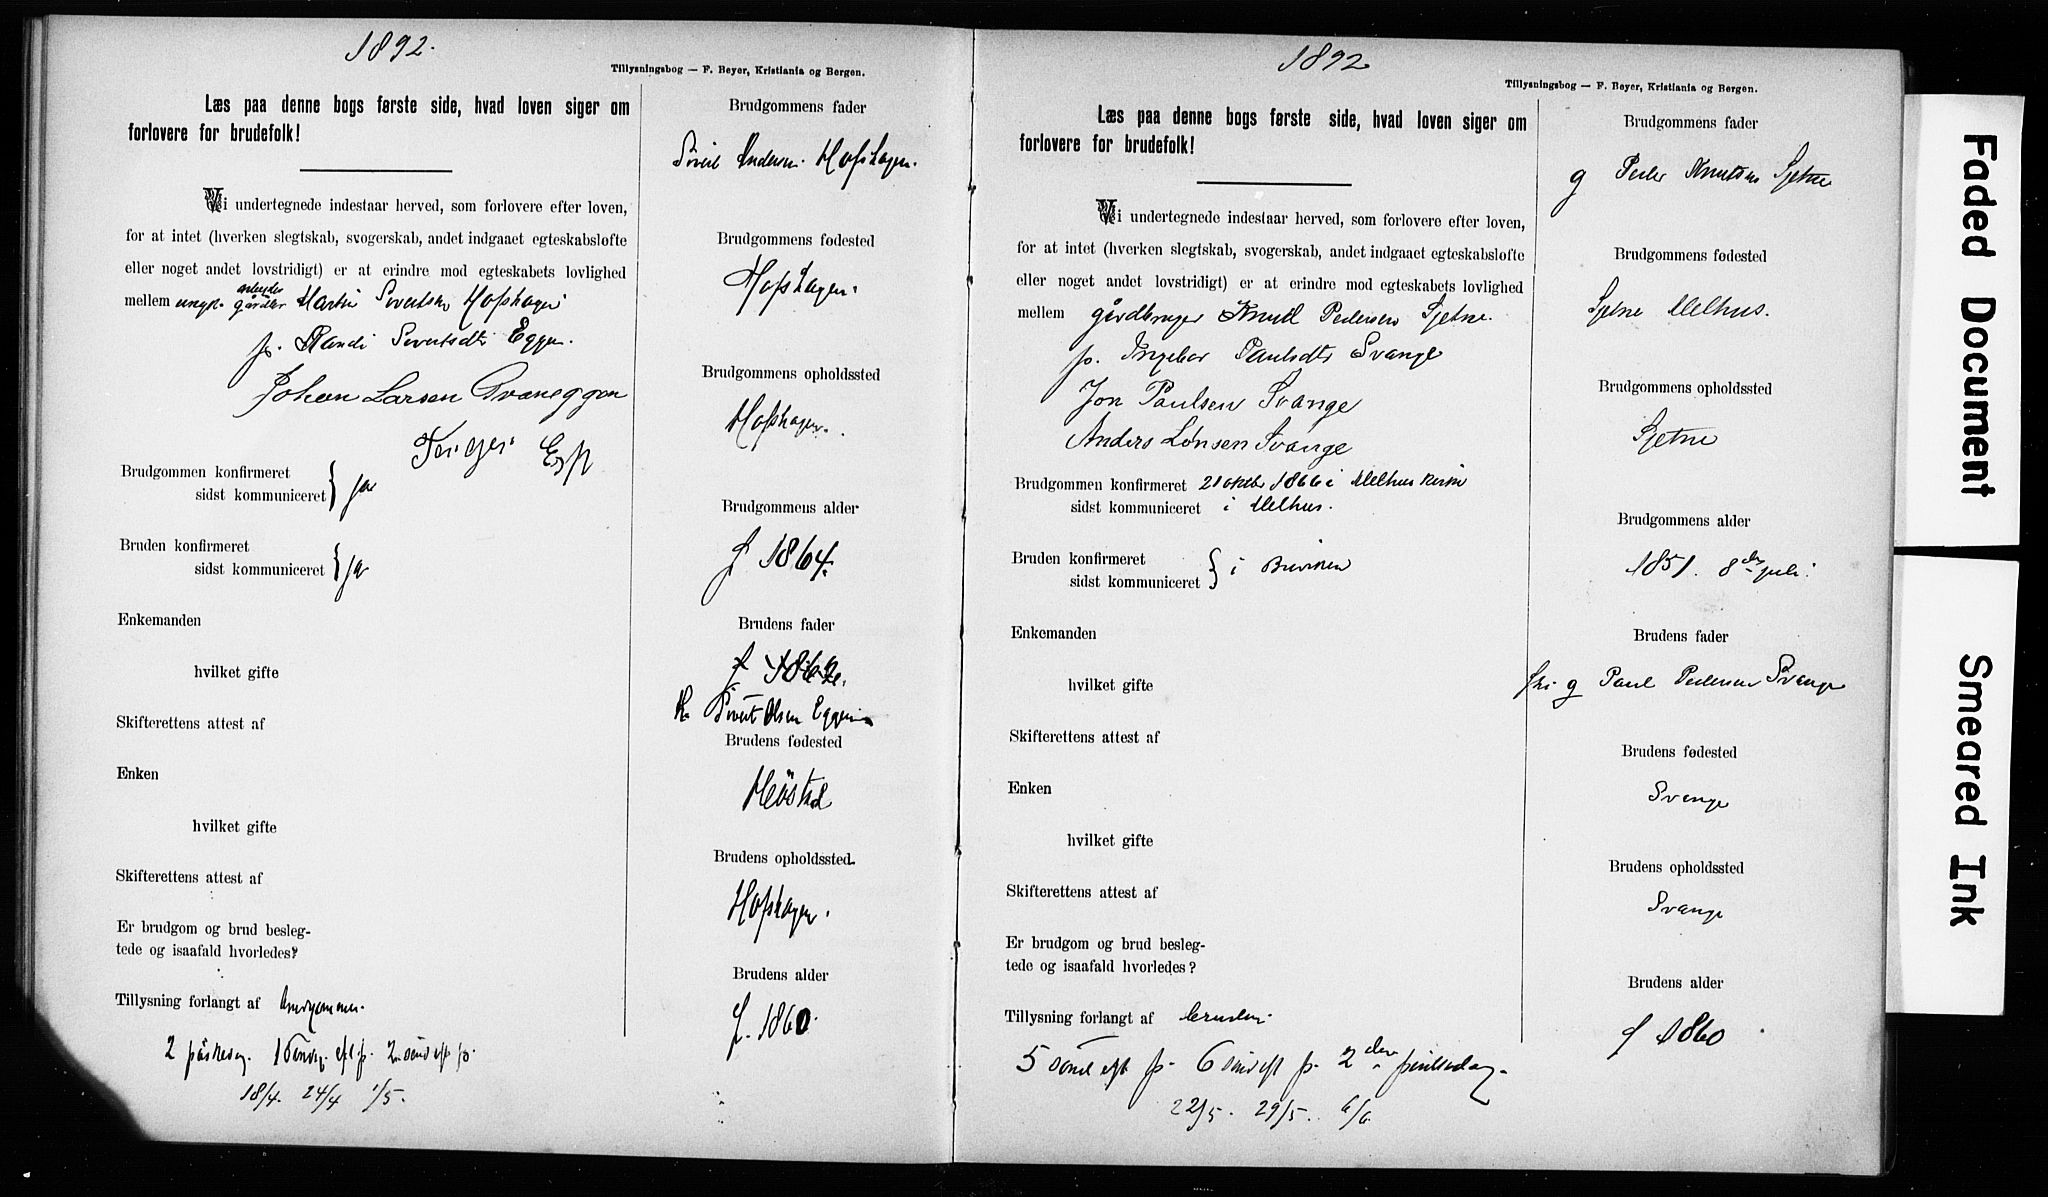 1892.
Tillysningsbog — F. Beyer, Kristiania og Bergen.
Læs paa denne bogs første side, hvad loven siger om
forlovere for brudefolk!
Vi undertegnede indestaar herved, som forlovere efter loven,
for at intet (hverken slegtskab, svogerskab, andet indgaaet egteskabsløfte
eller noget andet lovstridigt) er at erindre mod egteskabets lovlighed
arbeider
mellem ungk. Martin Sivertsen Hofshagen
p. Randi Sivertsdtr Eggen.
Johan Larsen Svaneggen
Esp
Brudgommen konfirmeret
sidst kommuniceret } ja
Bruden konfirmeret
sidst kommuniceret } ja
Enkemanden
hvilket gifte
Skifterettens attest af
Enken
hvilket gifte
Skifterettens attest af
Er brudgom og brud besleg-
tede og isaafald hvorledes?
Tillysning forlangt af brudgommen.
2 påskedag. 1 søndag eft p. 2 sønd eft p.
18/4. 24/4 1/5.
Brudgommens fader
Sivert Andersen Hofshagen.
Brudgommens fødested
Hofshagen.
Brudgommens opholdssted
Hofshagen.
Brudgommens alder
f 1864.
Brudens fader
f 1862.
Sivert Olsen Eggen
Brudens fødested
Høistad
Brudens opholdssted.
Hofshagen.
Brudens alder
f. 1860.
1892
Tillysningsbog — F. Beyer, Kristiania og Bergen.
Læs paa denne bogs første side, hvad loven siger om
forlovere for brudefolk!
Vi undertegnede indestaar herved, som forlovere efter loven,
for at intet (hverken slegtskab, svogerskab, andet indgaaet egteskabsløfte
eller noget andet lovstridigt) er at erindre mod egteskabets lovlighed
mellem gårdbruger Knud Pedersen Sjetne.
p. Ingebor Paulsdtr Svange
Jon Paulsen Svange
Anders Lønsen Svange
Brudgommen konfirmeret 21 oktbr 1866 i Melhus kirke
sidst kommuniceret i Melhus.
Bruden konfirmeret
sidst kommuniceret } i Buviken
Enkemanden
hvilket gifte
Skifterettens attest af
Enken
hvilket gifte
Skifterettens attest af
Er brudgom og brud besleg-
tede og isaafald hvorledes?
Tillysning forlangt af bruden.
5 sønd eft p. 6 sønd eft p. 2den pintsedag.
22/5. 29/5. 6/6
Brudgommens fader
g Peder Knutsen Sjetne
Brudgommens fødested
Sjetne Melhus.
Brudgommens opholdssted
Sjetne
Brudgommens alder
1851. 8de juli.
Brudens fader
g Paul Pedersen Svange
Brudens fødested
Svange
Brudens opholdssted
Svange
Brudens alder
f 1860
Faded Document
Smeared Ink